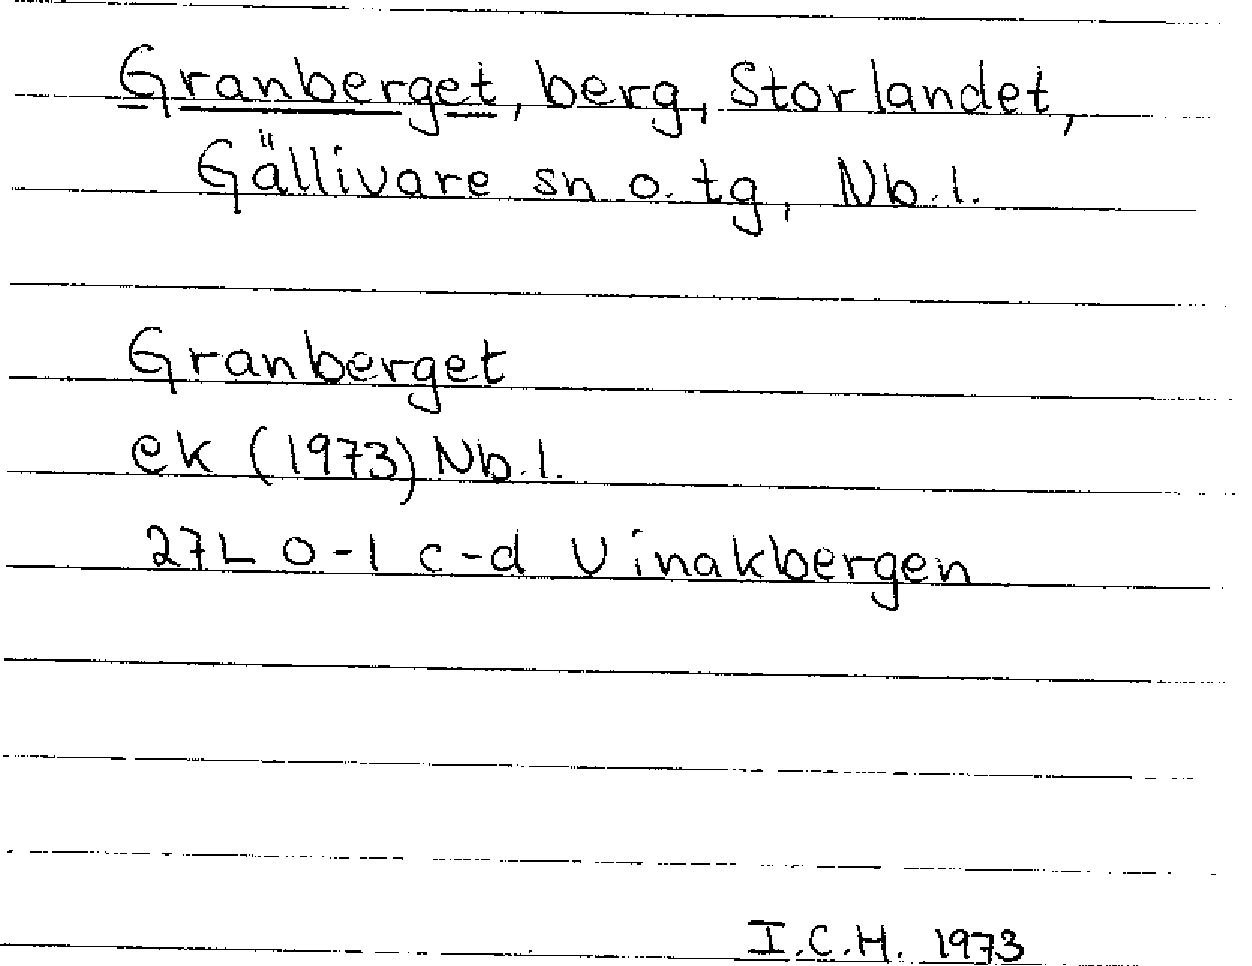 Granberget, berg, Storlandet,
Gällivare sn o. tg, Nb.l.
Granberget
ek (1973) Nb.l.
27L 0-1 c-d Vinakbergen
I.C.H. 1973